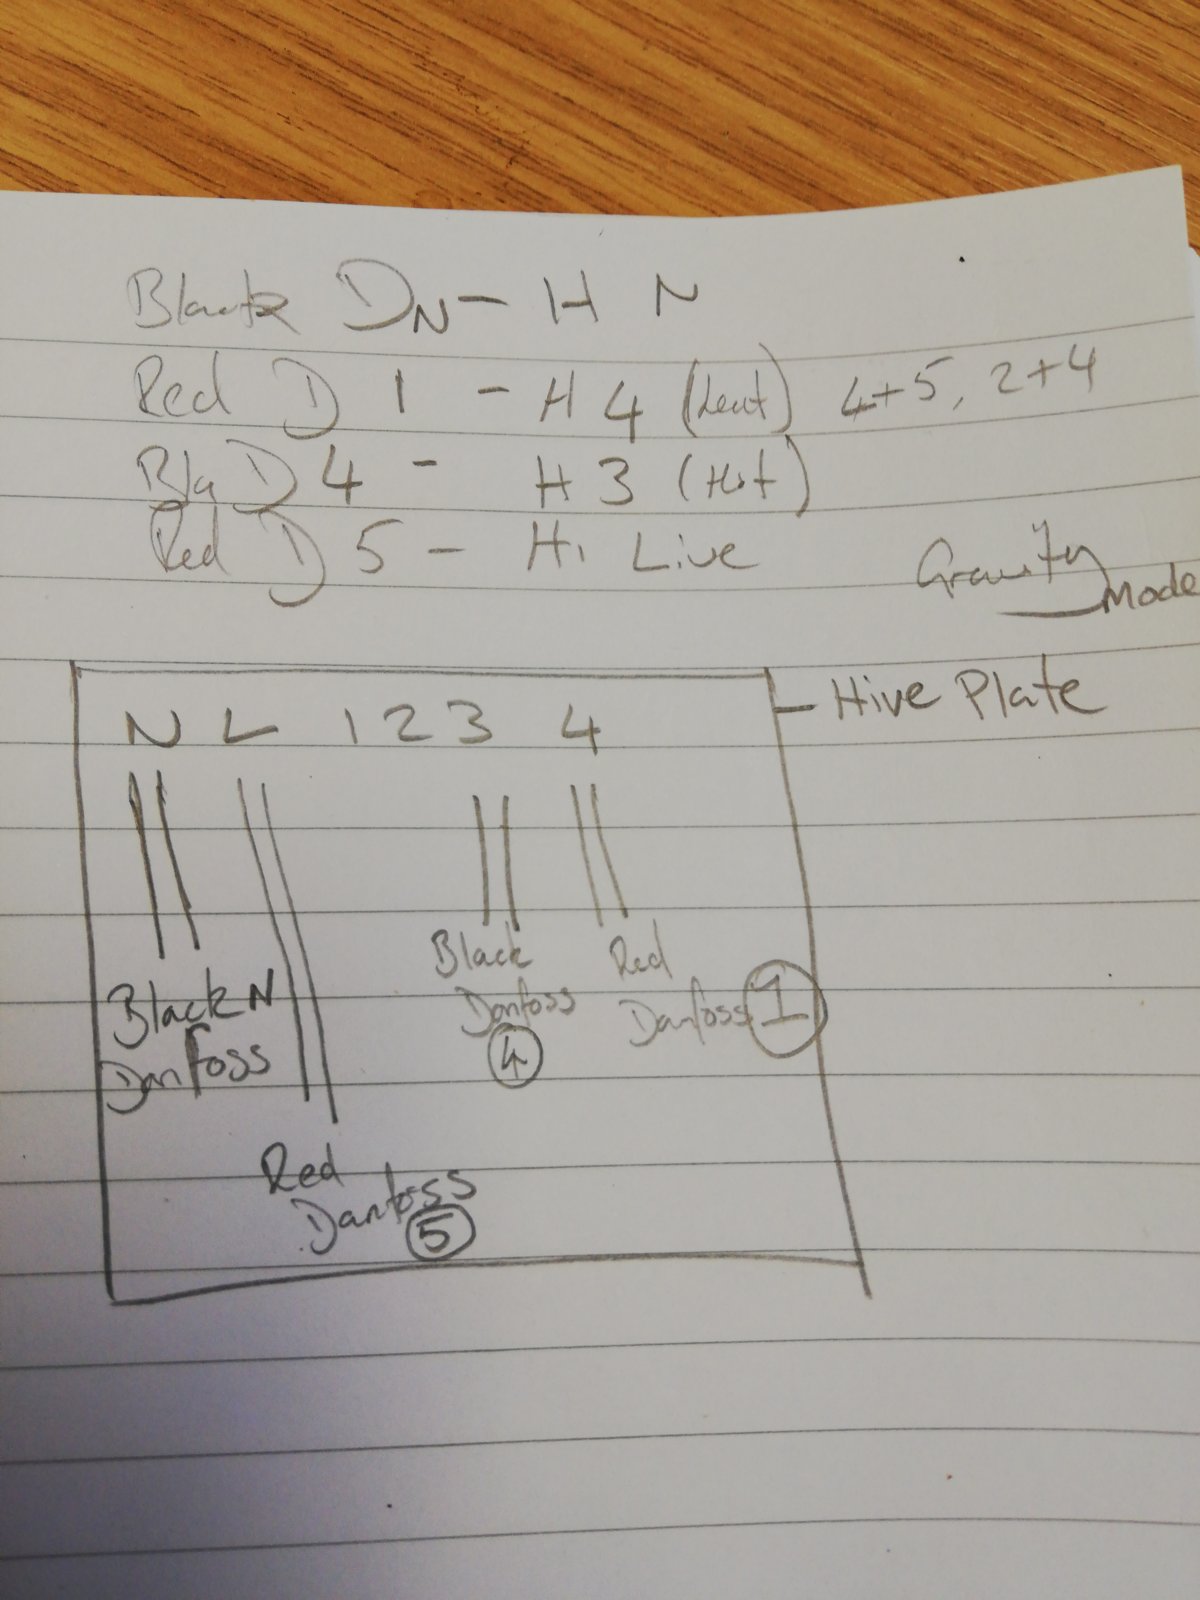 Black DN - H N
Red D 1 - H 4 (heat) 4+5, 2+4
Bla D 4 - H 3 (Hot)
Red D 5 - H1 Live
Gravity
Mode
Hive Plate
N L 1 2 3 4
Black Red
Danfoss Danfoss 1
4
Black N
Danfoss
Red
Danfoss
5